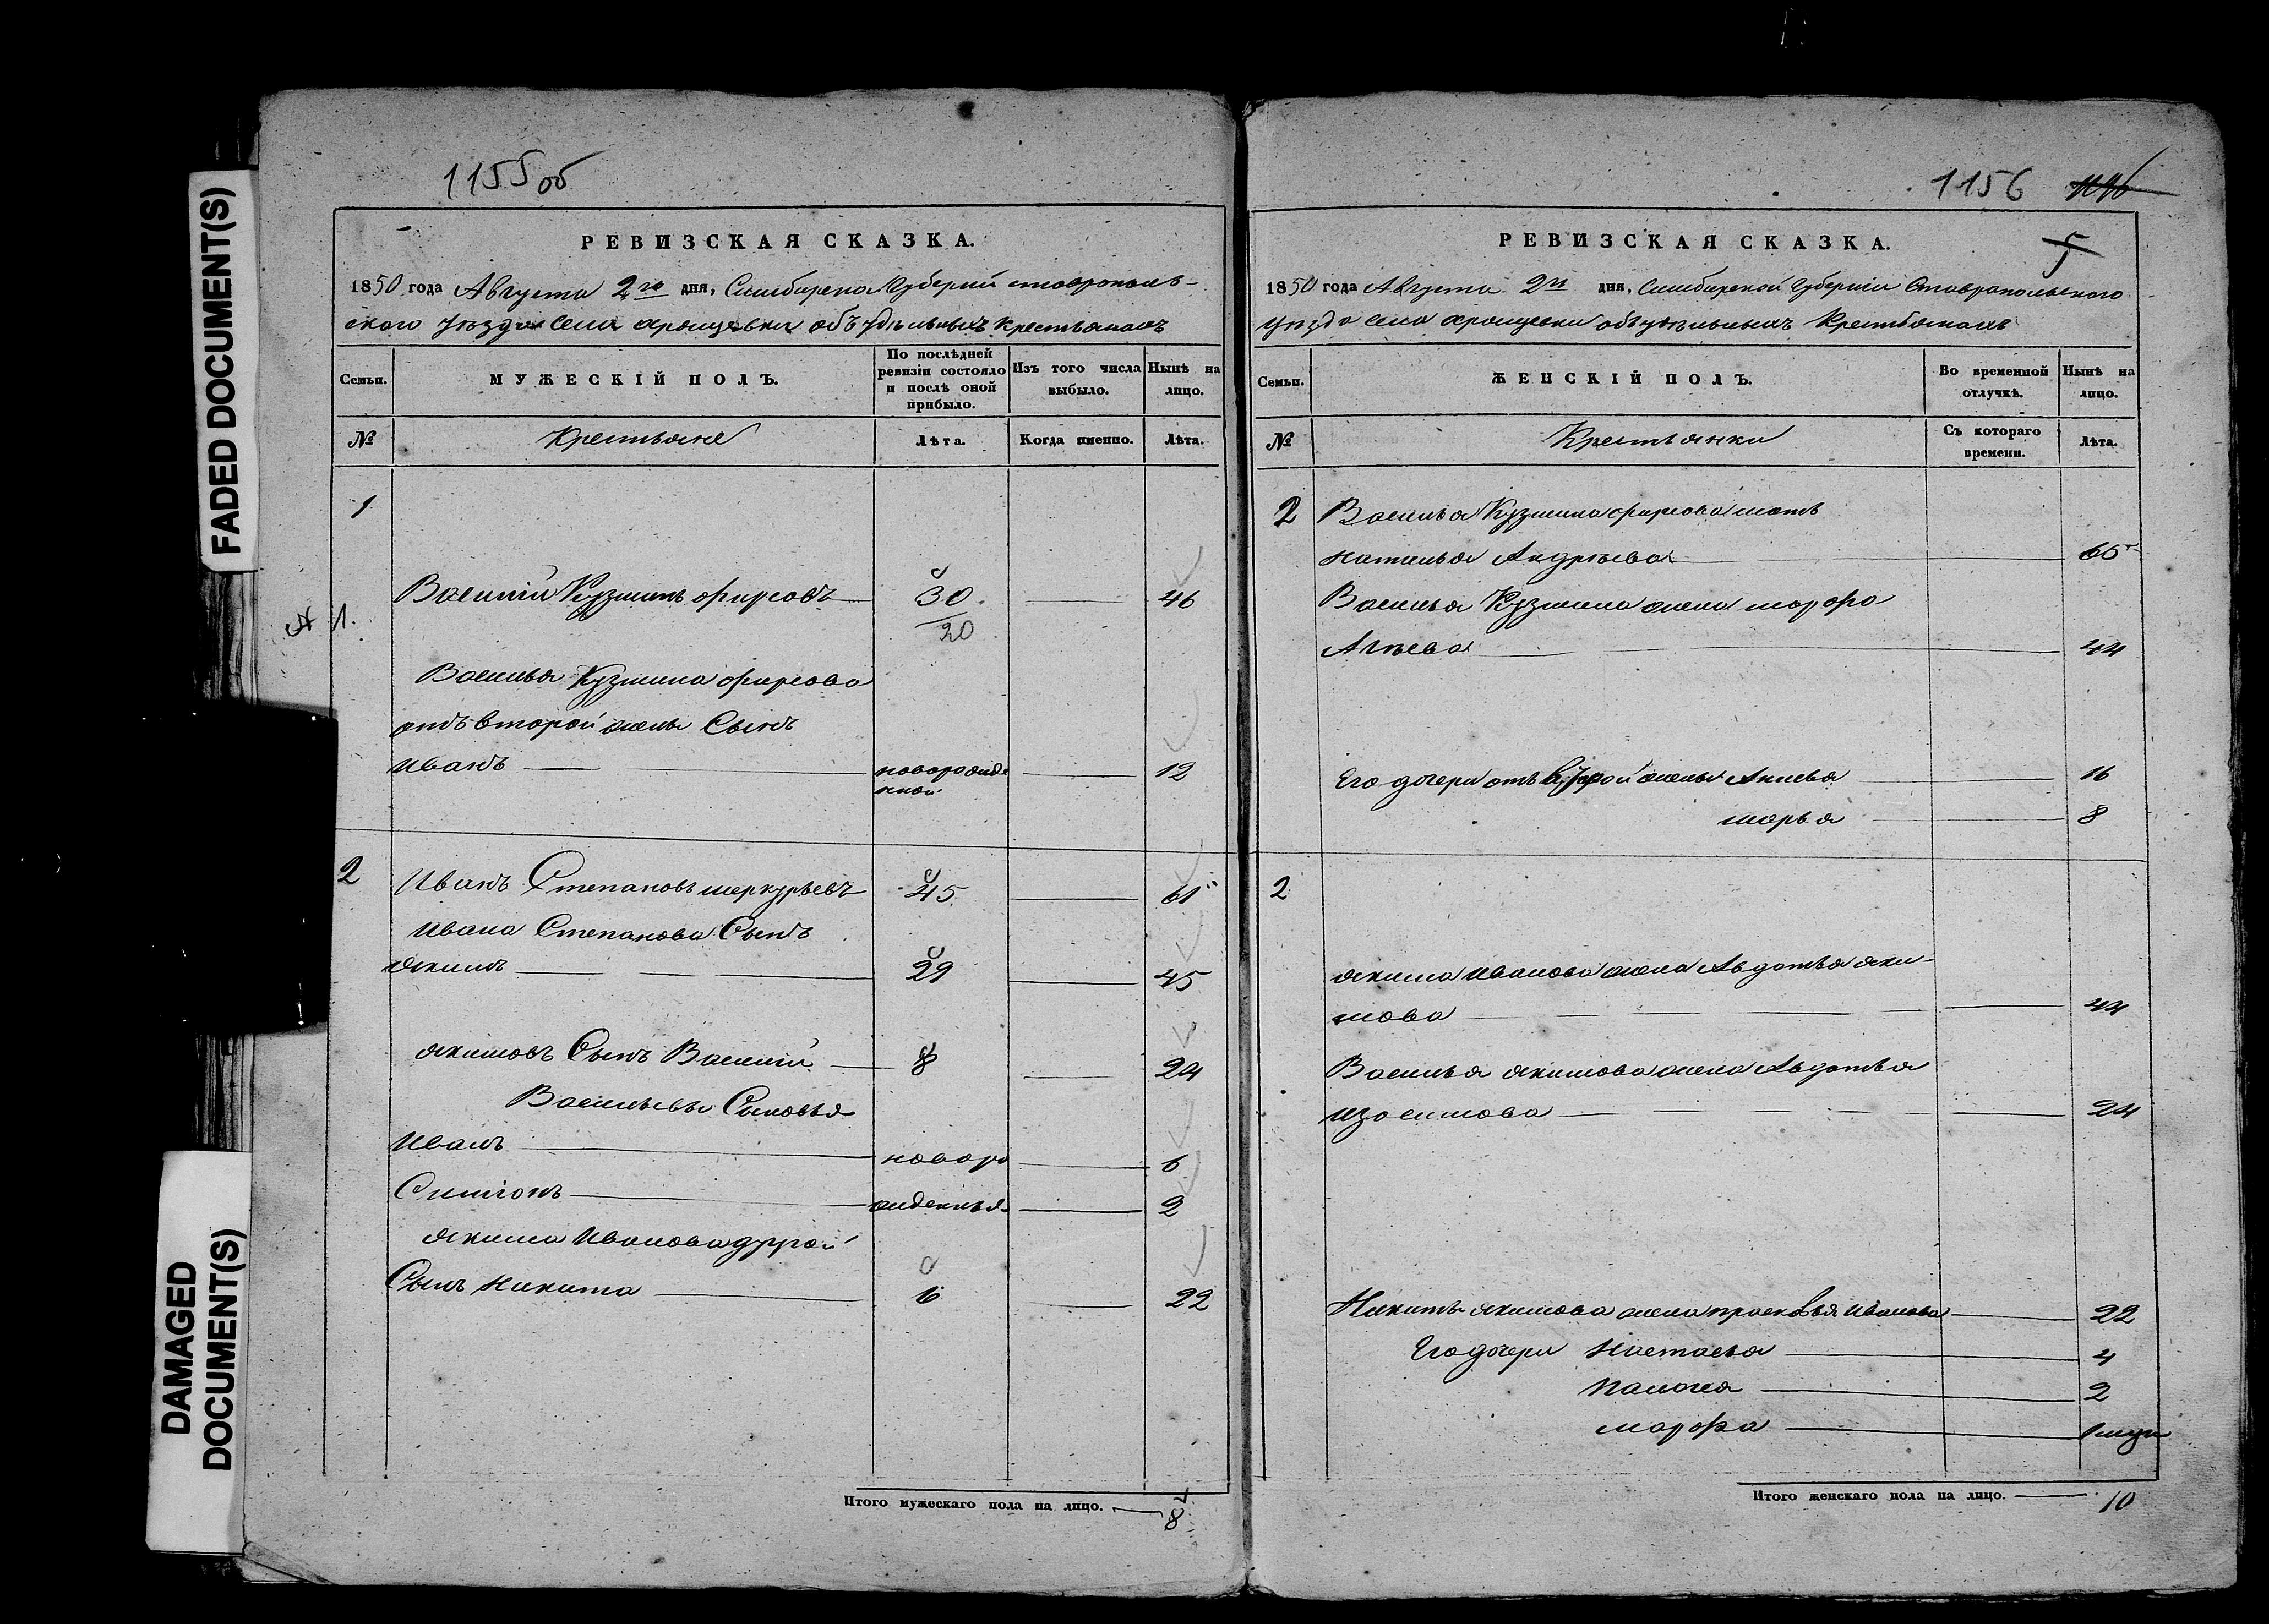 FADED DOCUMENT(S)
DAMAGED
DOCUMENT(S)
1155 об
РЕВИЗСКАЯ СКАЗКА.
1850 года Августа 2го дня, Симбирской Губернии Ставрополь-
скаго Уѣзда Села Хрящевки объ удѣльныхъ крестьянахъ
Семьи.
МУЖЕСКІЙ ПОЛЪ.
По послѣдней ревизіи состояло и послѣ оной прибыло.
Изъ того числа выбыло.
Нынѣ на лицо.
№
Крестьяне
Лѣта.
Когда именно.
Лѣта.
1
Василий Кузминъ Фирсовъ 30 46
1.
20
Василья Кузмина Фирсова
отъ второй жены Сынъ
Иванъ новорожде 12
нной
2 Иванъ Степановъ Меркурьевъ 45 61
Ивана Степанова Сынъ
Якимъ 29 45
Якимовъ Сынъ Василий 8 24
Васильевы Сыновья
Иванъ новоро 6
Симіонъ жденныя 2
Якима Иванова другой
Сынъ Никита 6 22
Итого мужескаго пола на лицо. 8
1156
5
РЕВИЗСКАЯ СКАЗКА.
1850 года Августа 2го дня, Симбирской Губерніи Ставропольскаго
Уѣзда села Хрящевки объ удѣльныхъ Крестьянахъ
Семьи.
ЖЕНСКІЙ ПОЛЪ.
Во временной отлучкѣ.
Нынѣ на лицо.
№
Крестьянки
Съ котораго времени.
Лѣта.
2 Василья Кузмина Фирсова мать
Наталья Андреева 65
Василья Кузмина жена Марфа
44
Его дочери отъ второй жены 16
Марья 8
2
Якима Иванова жена Авдотья Яки-
мова 44
Василья Якимова жена Авдотья
Изосимова 24
Никиты Якимова жена Прасковья Иванова 22
Его дочери Настасья 4
2
Марфа
Итого женскаго пола на лицо. 10